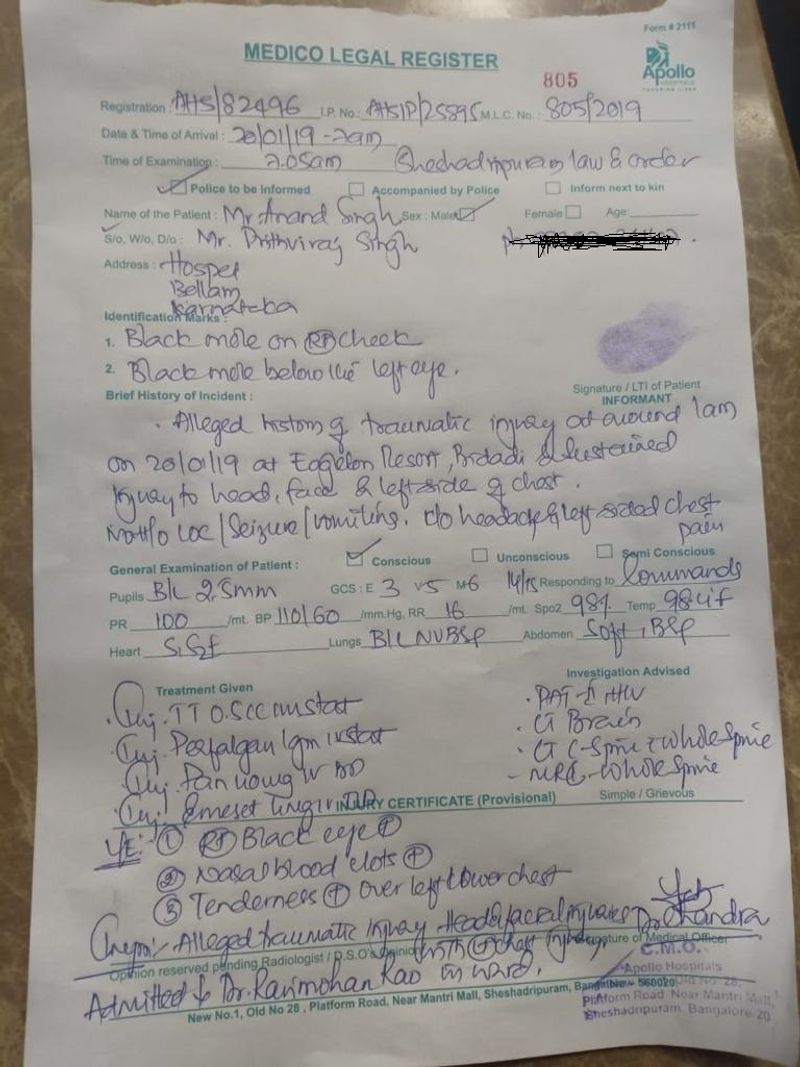 Form # 2111
MEDICO LEGAL REGISTER
Apollo
HOSPITALS
TOUCHING LIVES
805
Registration : AHS/82496 I.P. No.: AHSIP/25895 M.L.C. No. : 805/2019
Date & Time of Arrival : 20/01/19 - 2am
Time of Examination : 2.05am Sheshadripuram law & order
Police to be informed Accompanied by Police Inform next to kin
Name of the Patient : Mr. Anand Singh Sex : Male Female Age:
S/o, W/o, D/o : Mr. Prithviraj Singh
Address : Hospet
Bellam
Karnataka
Identification Marks :
1. Black mole on Rt cheek
2. Black mole below the left eye.
Signature / LTI of Patient
INFORMANT
Brief History of Incident :
. Alleged history of traumatic injury at around 1am
on 20/01/19 at Eagleton Resort, Bidadi & sustained
injury to head, face & left side of chest.
No H/o LOC / Seizure / vomiting. C/o headache & left sided chest
pain
General Examination of Patient : Conscious Unconscious Semi Conscious
Pupils B/L 2.5mm GCS : E 3 V5 M6 14/15 Responding to Commands
PR 100 /mt. BP 110/60 /mm.Hg, RR 16 /mt. Spo2 98% Temp 98.4F
Heart S1S2+ Lungs B/L NVBS+ Abdomen Soft, BS+
Treatment Given Investigation Advised
. Inj. TT 0.5cc im stat
. Inj. Perfalgan 1gm iv stat
. Inj. Pan 40mg IV BD
. Inj. Emeset 4mg IV
. CT Brain
. CT C-Spine whole Spine
- MRI - whole Spine
INJURY CERTIFICATE (Provisional) Simple / Grievous
① Rt Black eye +
② Nasal blood clots +
③ Tenderness + over left lower chest
Alleged traumatic injury Head & facial injuries Dr. Chandra
with chest injury, Signature of Medical Officer
Opinion reserved pending Radiologist / D.S.O's Opinion
C.M.O.
Apollo Hospitals
Admitted Dr. Ravimohan Rao in ward.
New No.1, Old No 28 , Platform Road, Near Mantri Mall, Sheshadripuram, Bangalore - 560020
Old No. 28,
Platform Road, Near Mantri Mall,
Sheshadripuram, Bangalore-20